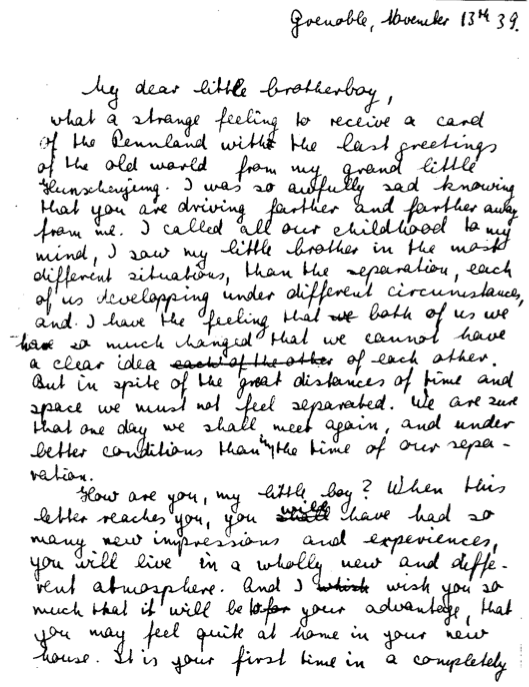 Grenoble, November 13th 39.
My dear little brotherboy,
what a strange feeling to receive a card
of the Pennland with the last greetings
of the old world from my grand little
I was so awfully sad knowing
that you are driving farther and farther away
from me. I called all our childhood to my
mind, I saw my little brother in the most
different situations, than the separation, each
of us developping under different circumstances,
and I have the feeling that we both of us we
have so much changed that we cannot have
a clear idea each of the other of each other.
But in spite of the great distances of time and
space we must not feel separated. We are sure
that one day we shall meet again, and under
better conditions than in the time of our sepa-
ration.
How are you, my little boy? When this
letter reaches you, you shall will have had so
many new impressions and experiences,
you will live in a wholly new and diffe-
rent atmosphere. And I whish wish you so
much that it will be to your advantage, that
you may feel quite at home in your new
house. It is your first time in a completely